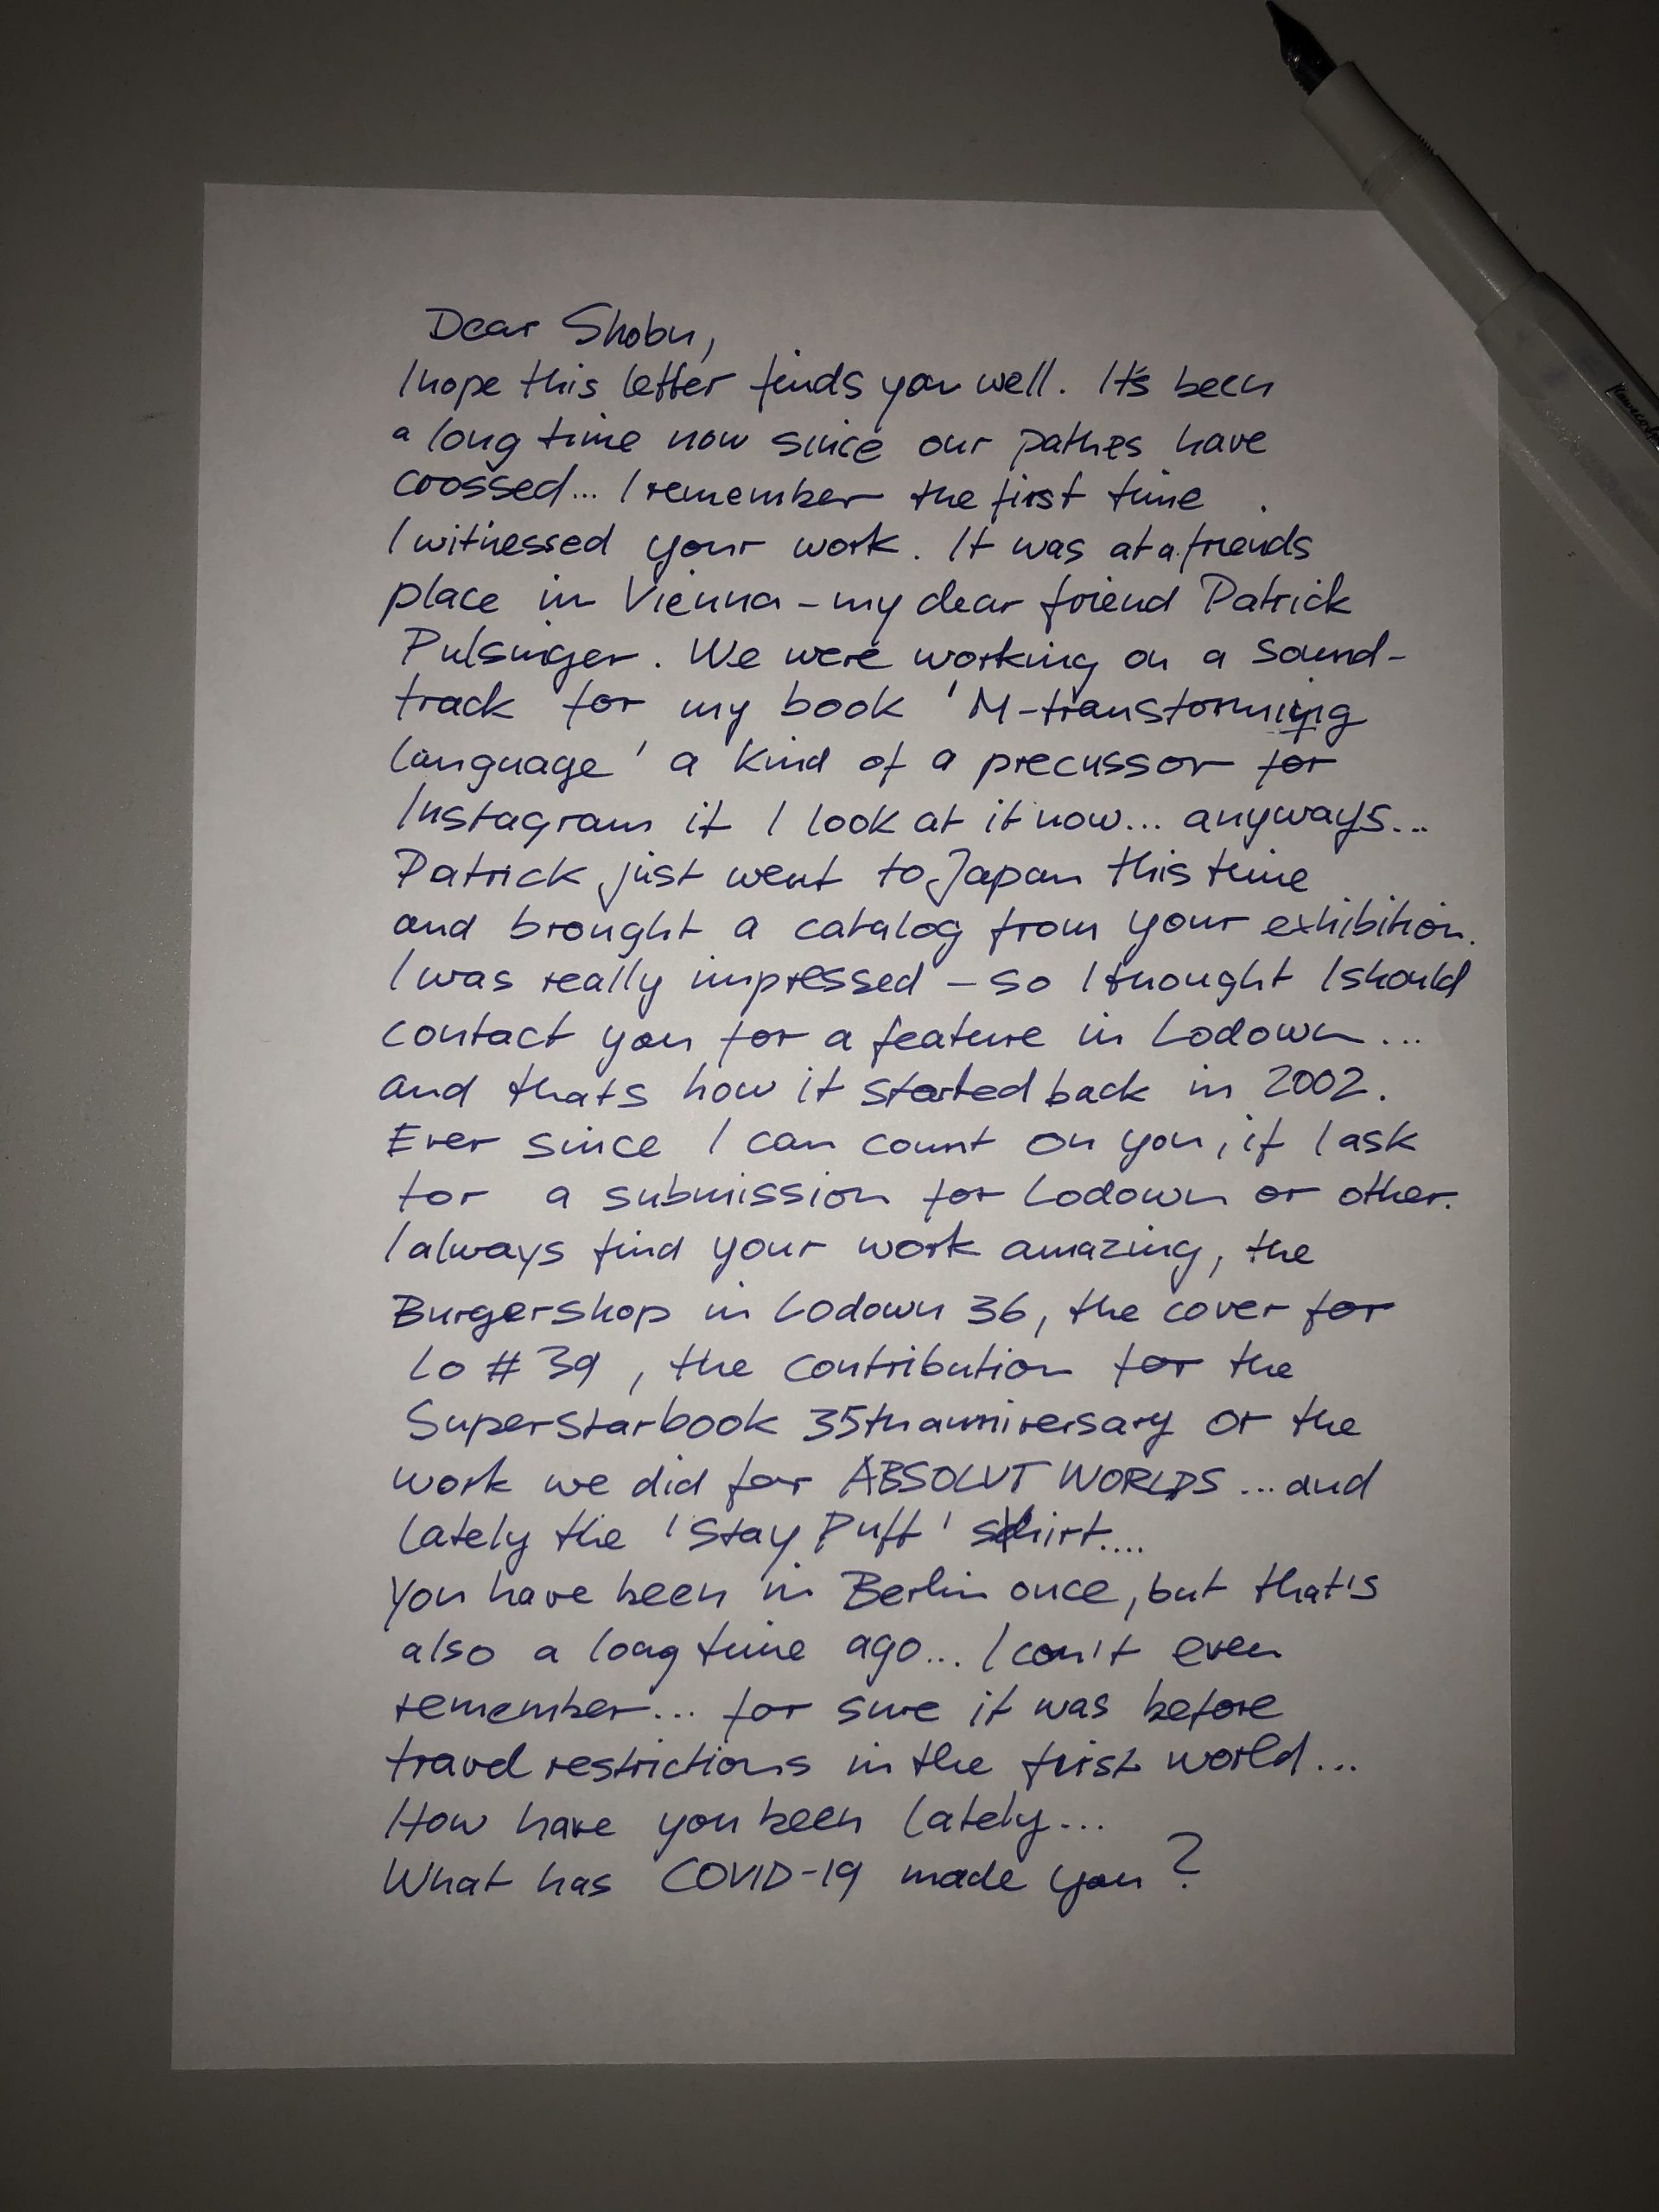 Dear Shobu,
I hope this letter finds you well. It's been
a long time now since our pathes have
coossed... I remember the first time
I witnessed your work. It was at a friends
place in Vienna - my dear friend Patrick
Pulsinger. We were working on a sound-
track for my book 'M-transforming
language' a kind of a precussor for
Instagram if I look at it now... anyways...
Patrick just went to Japan this time
and brought a catalog from your exhibition.
I was really impressed - so I thought I should
contact you for a feature in Lodown...
and thats how it started back in 2002.
Ever since I can count on you, if I ask
for a submission for Lodown or other.
I always find your work amazing, the
Burgershop in Lodown 36, the cover for
Lo # 39, the contribution for the
Superstarbook 35th anniversary or the
work we did for ABSOLUT WORLDS ... and
lately the 'Stay Puft' shirt....
You have been in Berlin once, but that's
also a long time ago... I can't even
remember... for sure it was before
travel restrictions in the first world...
How have you been lately...
What has COVID-19 made you?